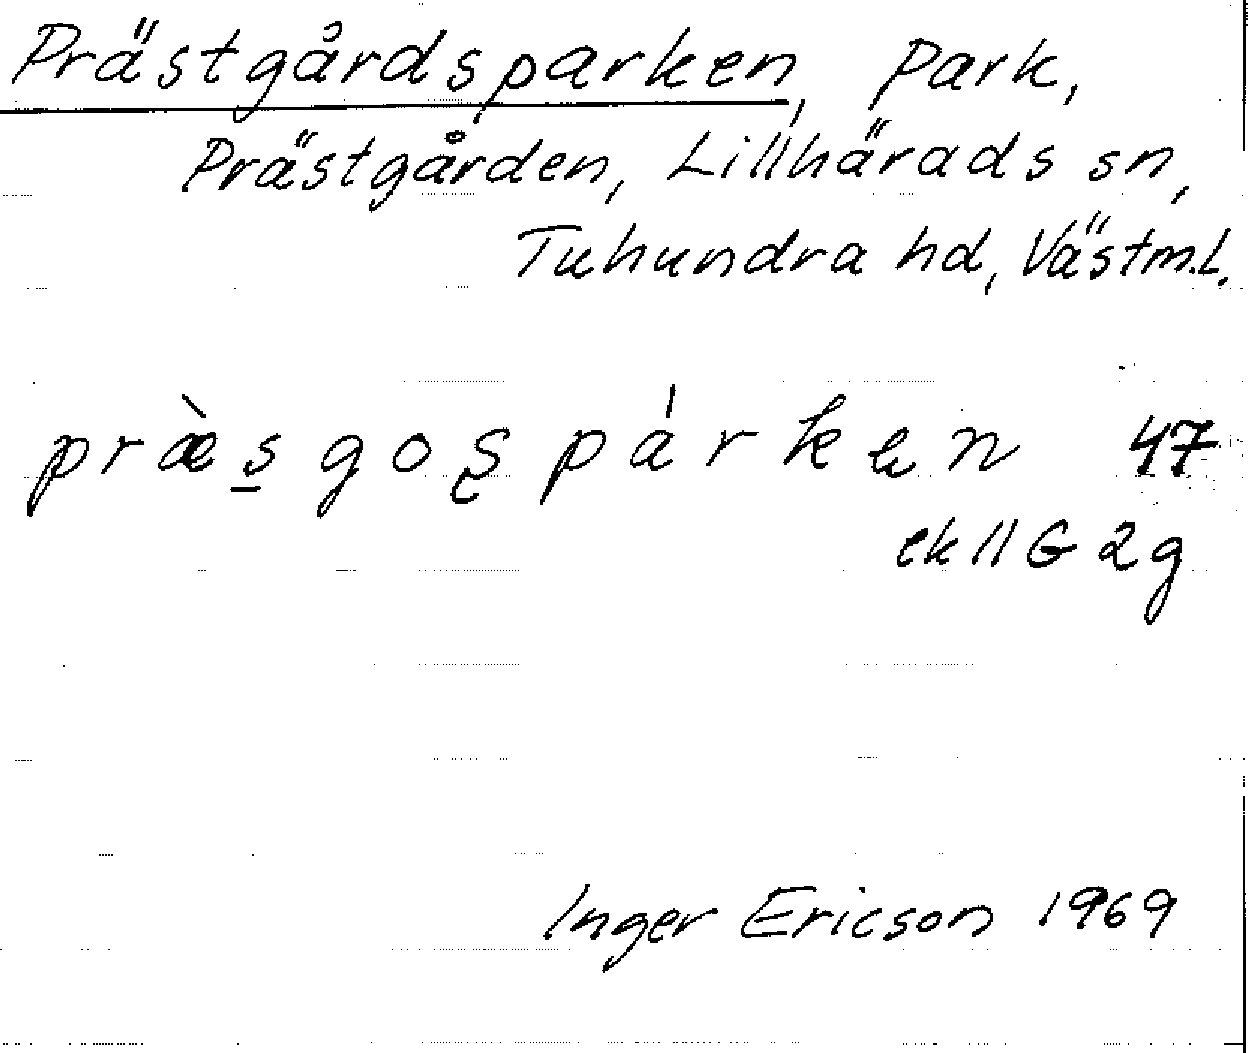 Prästgårdsparken, Park,
Prästgården, Lillhärads sn,
Tuhundra hd, Västm.L.
præ̀s̲goʂpárken 47
ek 11 G 2g
Inger Ericson 1969